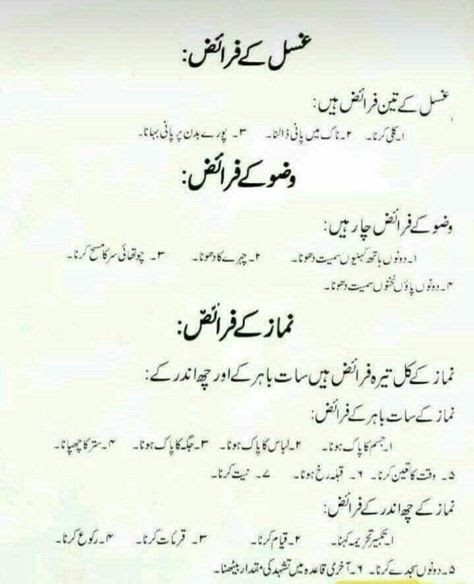 غسل کے فرائض:
غسل کے تین فرائض ہیں:
۱۔ کلی کرنا۔ ۲۔ ناک میں پانی ڈالنا۔ ۳۔ پورے بدن پر پانی بہانا۔
وضو کے فرائض:
وضو کے فرائض چار ہیں:
۱۔ دونوں ہاتھ کہنیوں سمیت دھونا۔ ۲۔ چہرے کا دھونا۔ ۳۔ چوتھائی سر کا مسح کرنا۔
۴۔ دونوں پاؤں ٹخنوں سمیت دھونا۔
نماز کے فرائض:
نماز کے کل تیرہ فرائض ہیں سات باہر کے اور چھ اندر کے:
نماز کے سات باہر کے فرائض:
۱۔ جسم کا پاک ہونا۔ ۲۔ لباس کا پاک ہونا۔ ۳۔ جگہ کا پاک ہونا۔ ۴۔ ستر کا چھپانا۔
۵۔ وقت کا تعین کرنا۔ ۶۔ قبلہ رخ ہونا۔ ۷۔ نیت کرنا۔
نماز کے چھ اندر کے فرائض:
۱۔ تکبیر تحریمہ کہنا۔ ۲۔ قیام کرنا۔ ۳۔ قرأت کرنا۔ ۴۔ رکوع کرنا۔
۵۔ دونوں سجدے کرنا۔ ۶۔ آخری قاعدہ میں تشہد کی مقدار بیٹھنا۔